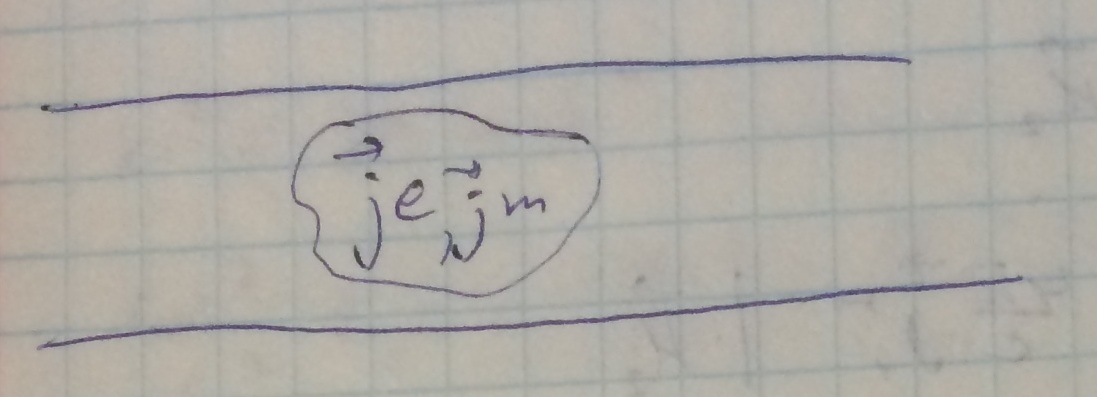 j⃗ e, j⃗ m